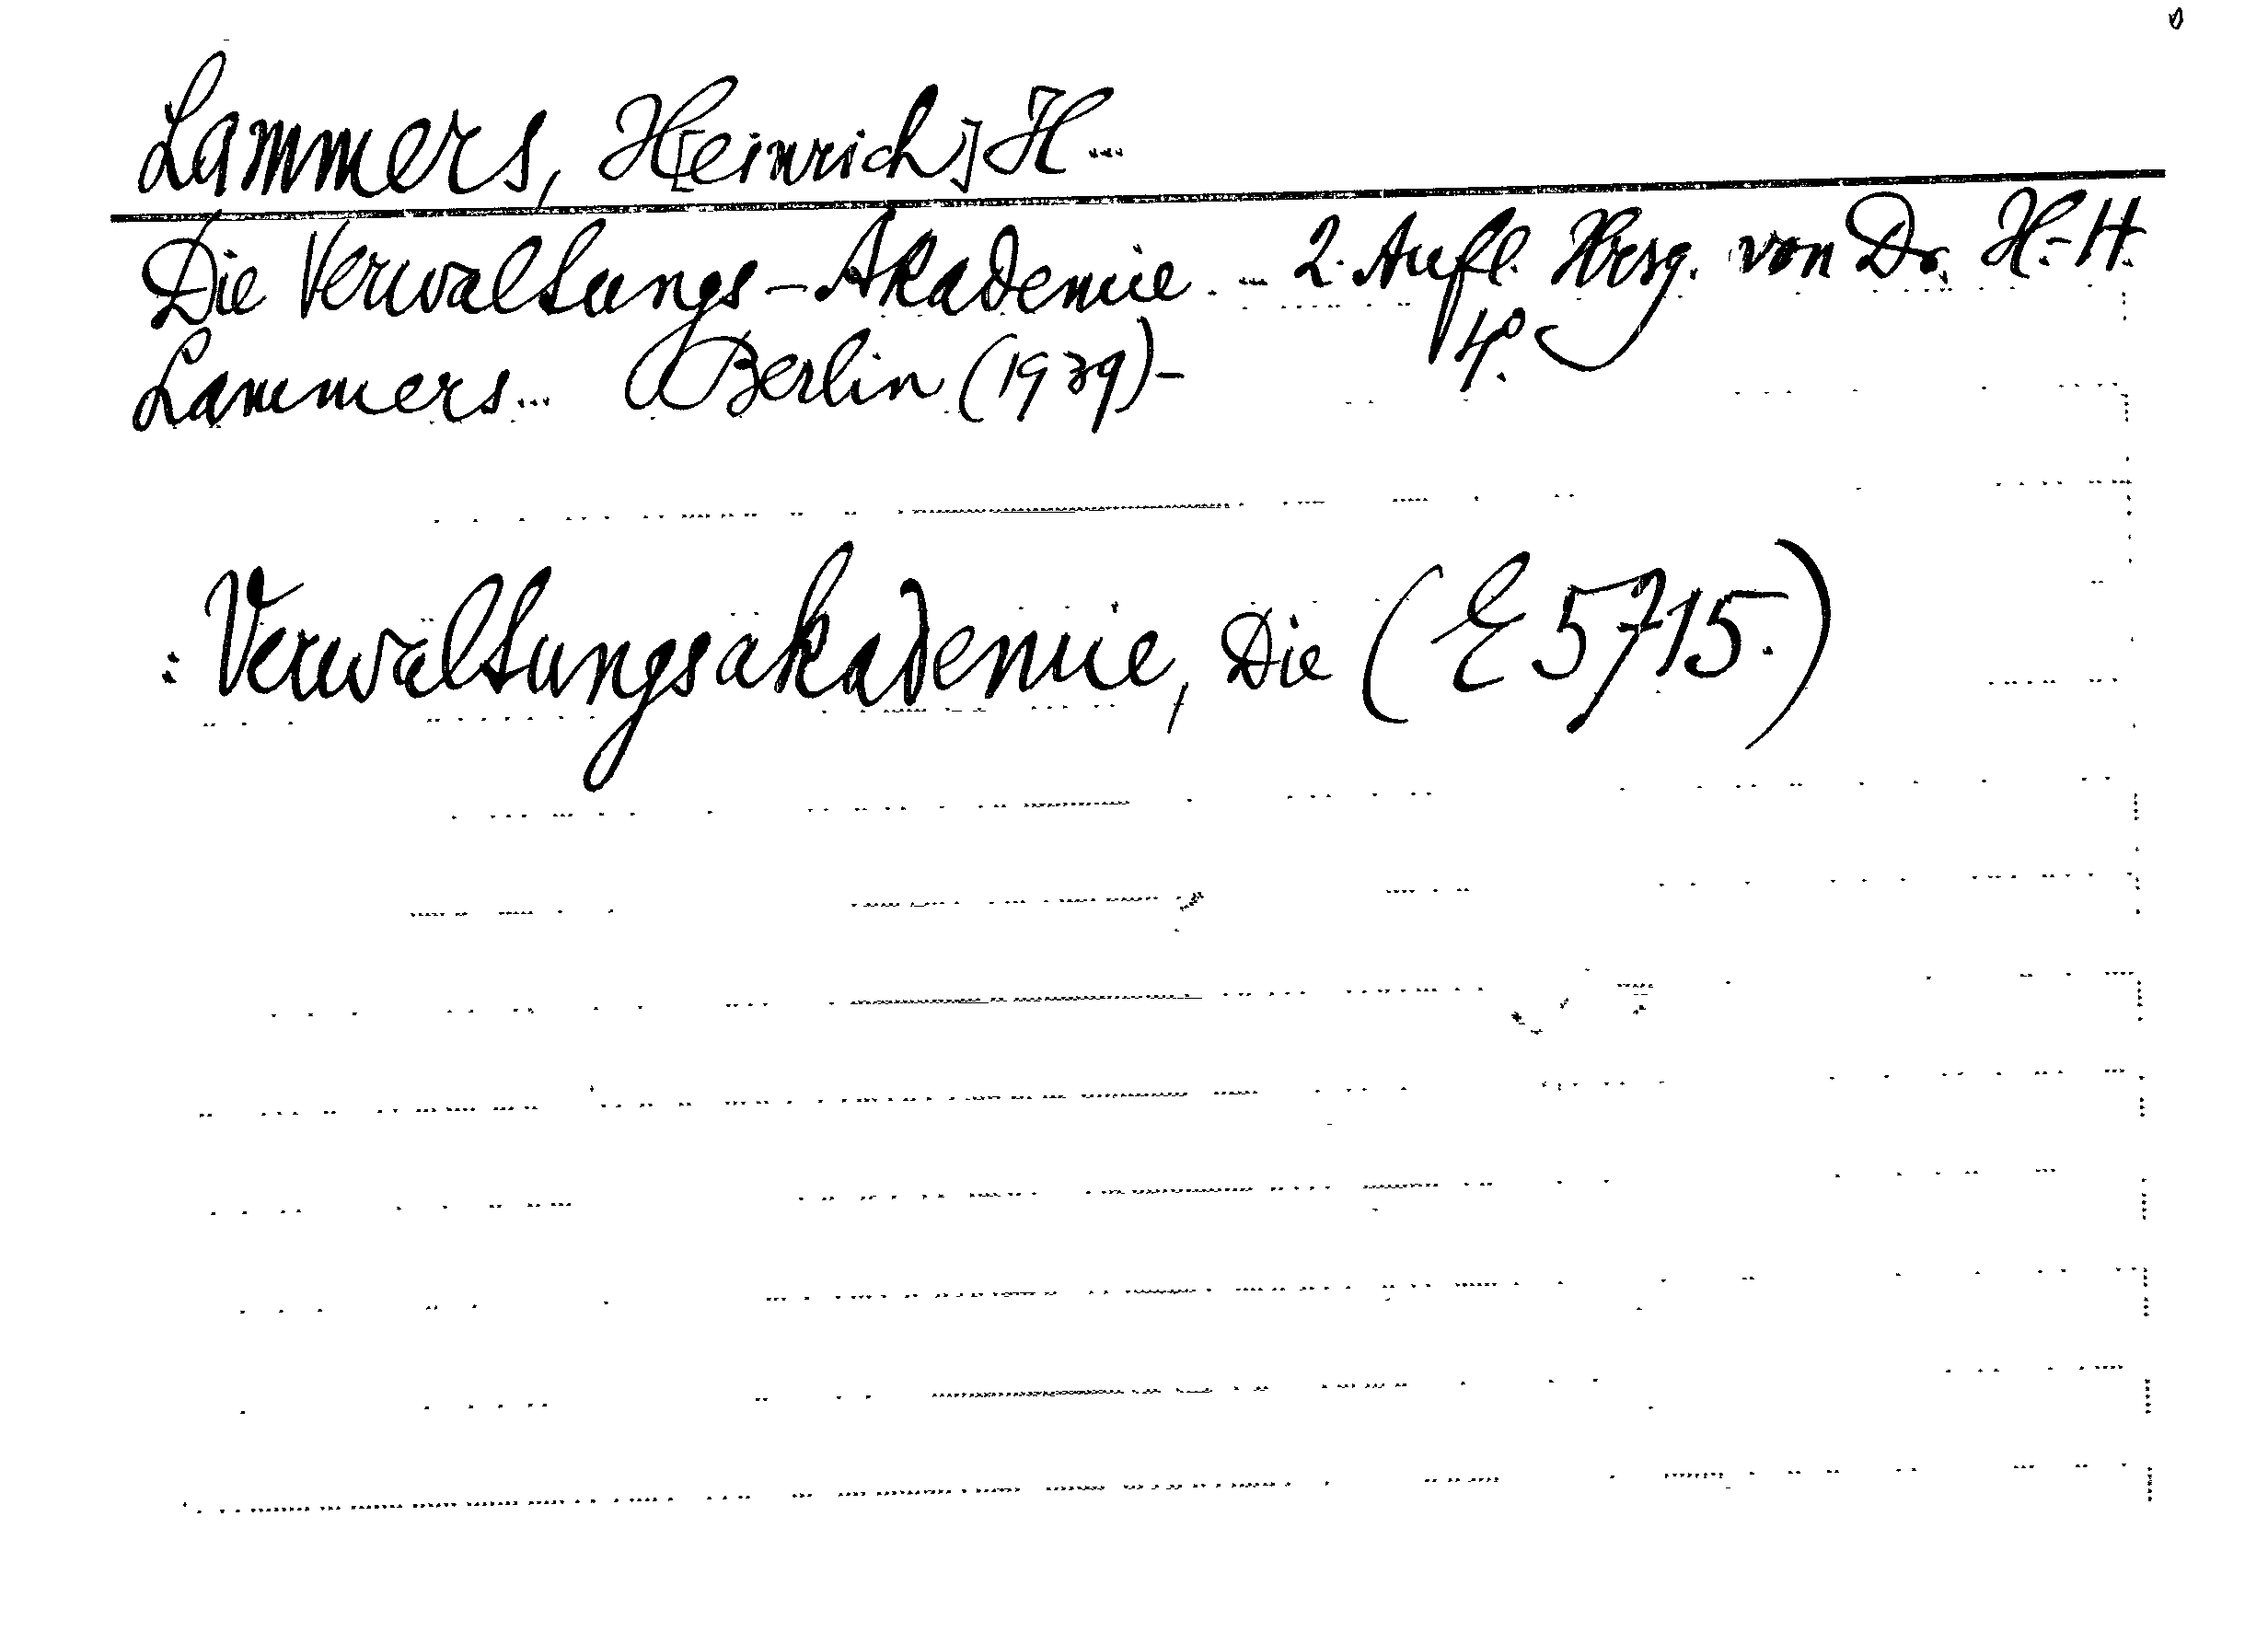 Lammers, H[einrich] H...
Die Verwaltungs-Akademie ... 2. Aufl. Hrsg. von Dr. H.-H.
Lammers... Berlin (1939)- 4°.
: Verwaltungsakademie, Die (E 5715.)